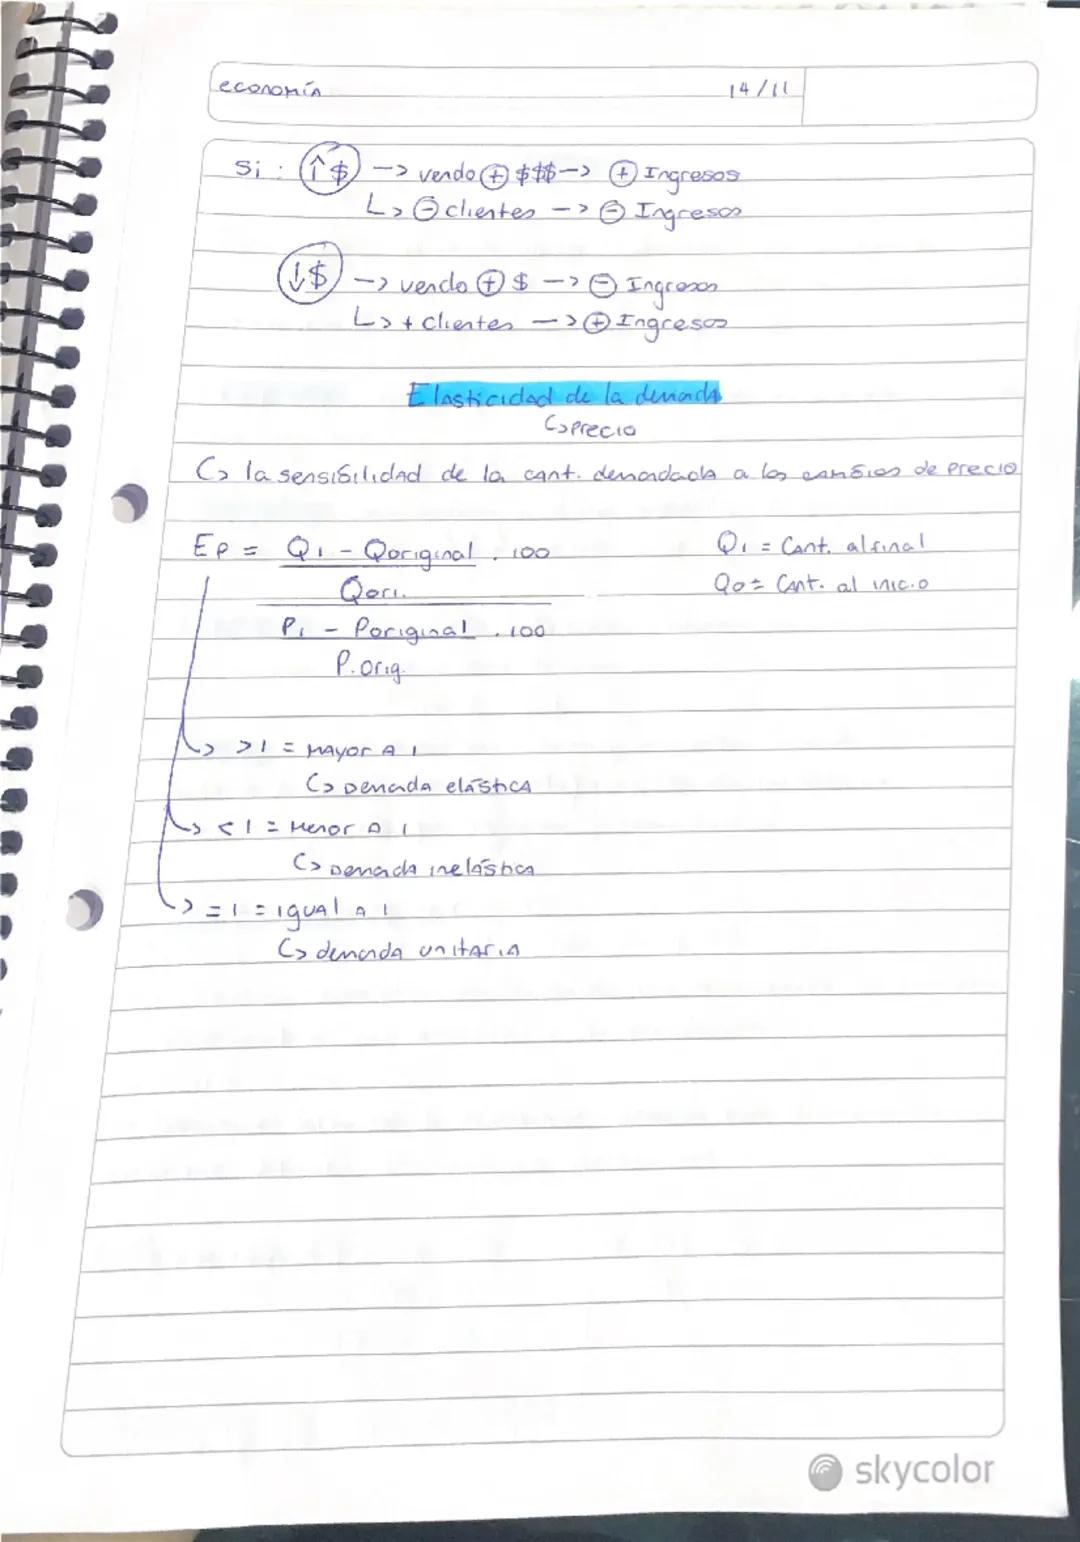 economía 14/11
Si: ↑$ -> vendo ⊕ $$$ -> ⊕ Ingresos
↳ ⊖ clientes -> ⊖ Ingresos
↓$ -> vendo ⊕ $ -> ⊖ Ingresos
↳ + clientes -> ⊕ Ingresos
Elasticidad de la demanda
↳ precio
↳ la sensibilidad de la cant. demandada a los cambios de precio
Ep = Q1 - Qoriginal . 100 Q1 = Cant. al final
Qori. Qo = Cant. al inicio
P1 - Poriginal . 100
P.orig.
↳ >1 = MAYOR A 1
↳ Demanda elástica
↳ <1 = Menor A 1
↳ Demanda inelástica
↳ =1 = igual A 1
↳ demanda unitaria
skycolor